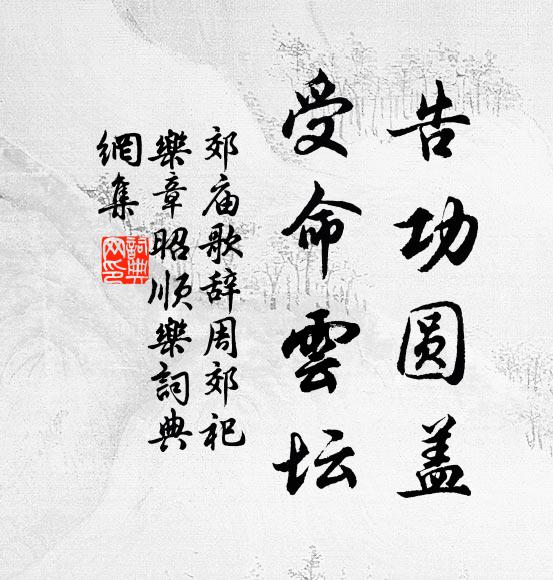 告功圆盖
受命雲坛
郊庙歌辞周郊祀
樂章昭順樂詞典
網集
詞典网印